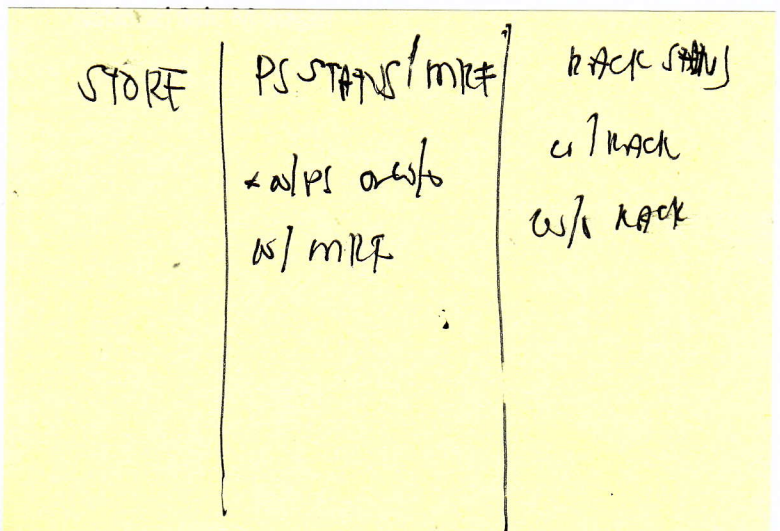 STORE
PS STATUS / MRF
RACK STATUS
* w/PS or w/o
w/ MRF
w/ RACK
w/o RACK